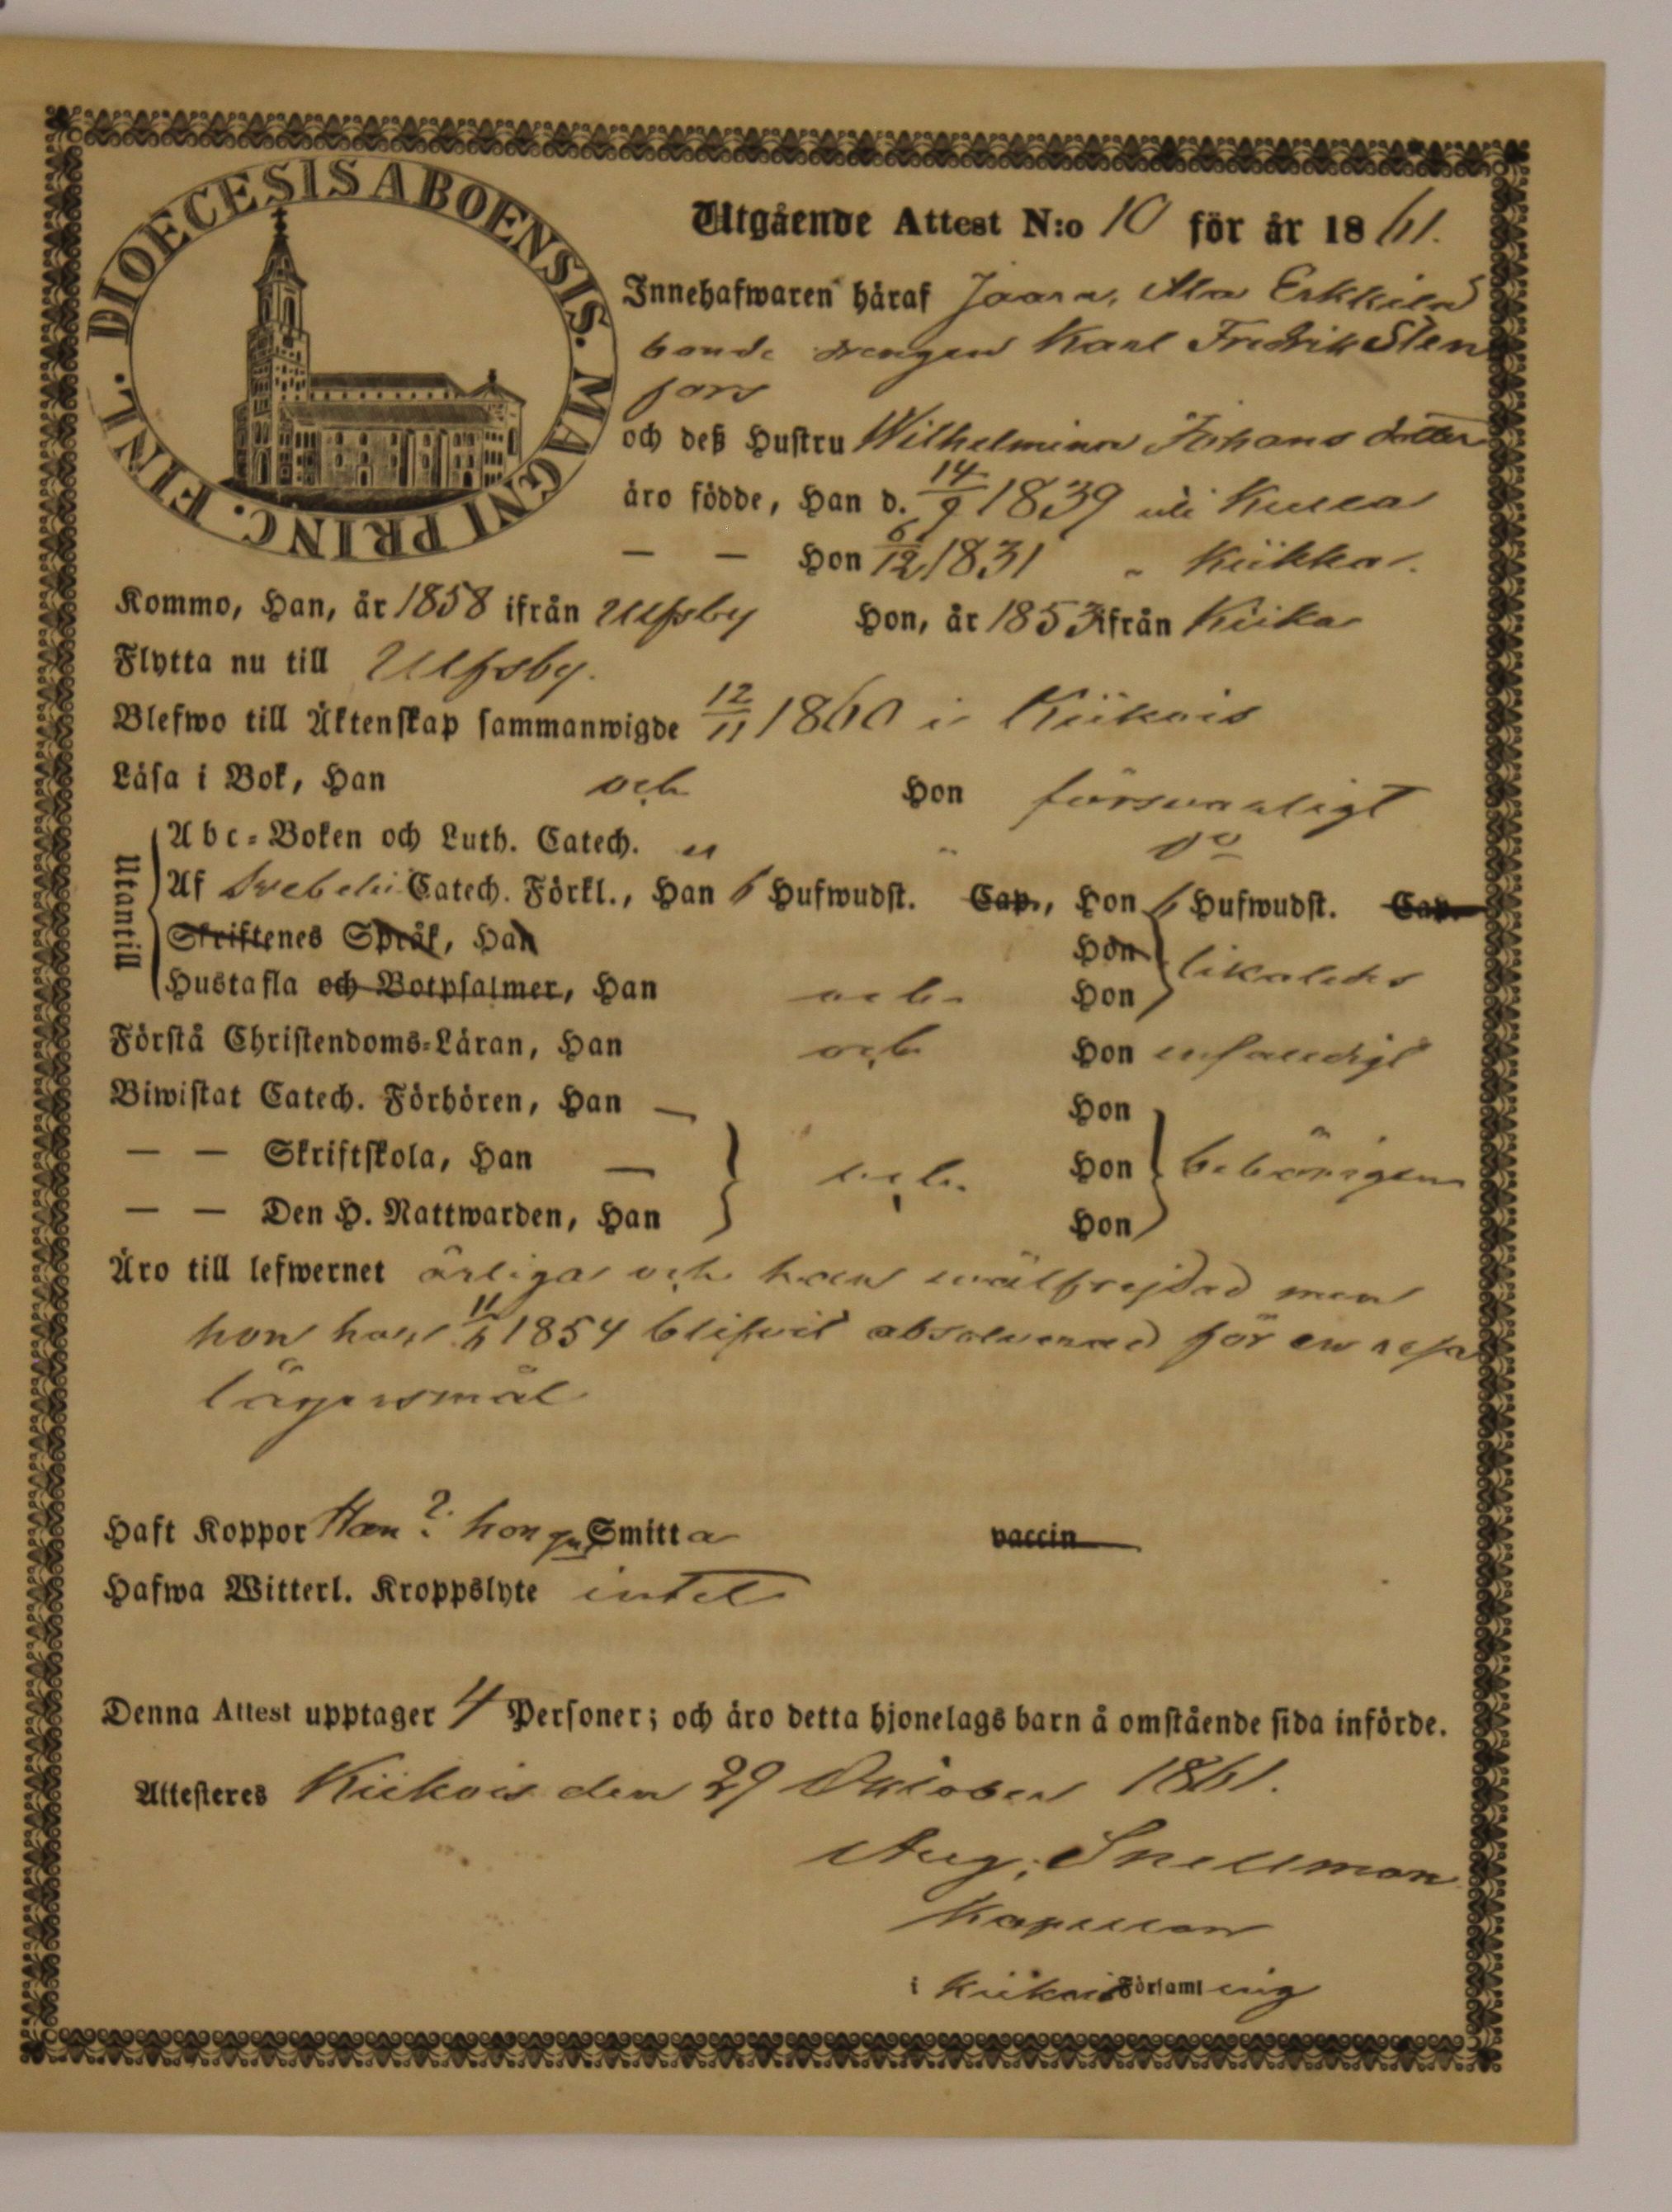 DIOECESIS ABOENSIS. MAGNI PRINC. FINL.
Utgående Attest N:o 10 för år 1861.
Innehafwaren häraf Jaara, Ala Erkkilä
bonde drengen Karl Fredrik Sten
fors
och deß Hustru Wilhelmina Johans dotter
äro födde, Han d. 14/9 1839 uti Kulla
— — Hon 6/12 1831 " Kiikka.
Kommo, Han, år 1858 ifrån Ulfsby Hon, år 1853 ifrån Kiika
Flytta nu till Ulfsby.
Blefwo till Äktenskap sammanwigde 12/11 1860 i Kiikois
Läsa i Bok, Han och Hon försvarligt
Utantill
Abc-Boken och Luth. Catech. " " do
Af Svebelii Catech. Förkl., Han 6 Hufwudst. Cap., Hon 6 Hufwudst. Cap.
Skriftenes Språk, Han Hon
Hustafla och Botpsalmer, Han och Hon likaledes
Förstå Christendoms-Läran, Han och Hon enfaldigt
Biwistat Catech. Förhören, Han — Hon
— — Skriftskola, Han — och Hon behörigen
— — Den H. Nattwarden, Han Hon
Äro till lefwernet ärliga och han wälfrejdad men
hon har 1854 blifvit absolverad för en resa
lägersmål
Haft Koppor Han ? hon Smitta vaccin
Hafwa Witterl. Kroppslyte intet
Denna Attest upptager 4 Personer; och äro detta hjonelags barn å omstående sida införde.
Attesteres Kiikois den 29 Oktober 1861.
Aug. Snellman
Kapellan
i Kiikois Församling